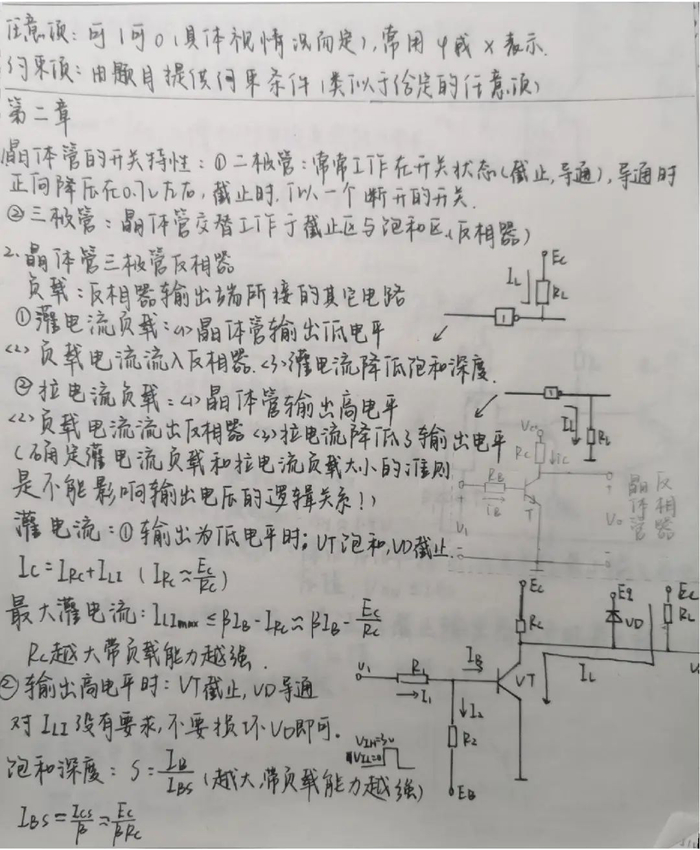 任意项：可1可0（具体视情况而定），常用φ或×表示.
约束项：由题目提供约束条件（类似于给定的任意项）
第二章
晶体管的开关特性：①二极管：常常工作在开关状态（截止，导通），导通时
正向降压在0.7V左右，截止时，似一个断开的开关.
②三极管：晶体管交替工作于截止区与饱和区（反相器）
2.晶体管三极管反相器
负载：反相器输出端所接的其它电路
①灌电流负载：<1>晶体管输出低电平
<2>负载电流流入反相器.<3>灌电流降低饱和深度.
②拉电流负载：<1>晶体管输出高电平
<2>负载电流流出反相器<3>拉电流降低了输出电平
（确定灌电流负载和拉电流负载大小的准则
是不能影响输出电压的逻辑关系！）
灌电流：①输出为低电平时；VT饱和，VD截止.
Ic=IRc+ILI（IRc≈Ec/Rc）
最大灌电流：ILImax≤βIB-IRc≈βIB-Ec/Rc
Rc越大带负载能力越强.
②输出高电平时：VT截止，VD导通
对ILI没有要求，不要损坏VD即可.
饱和深度：S=IB/IBS（越大，带负载能力越强）
IBS=Ics/β≈Ec/βRc
Ec
IL
RL
1
1
IL
RL
Vcc
Rc
ic
RB
iB
T
VI
Vo
晶体管
反相器
Ec
Rc
Eq
VD
Ec
RL
IL
VI
R1
I1
IB
VT
I2
R2
EB
VIH=3V
VIL=0